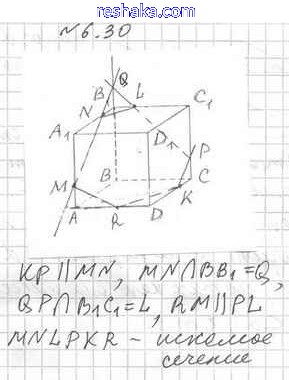 reshaka.com
№6.30
Q
B L
N C₁
A₁
D₁
P
M B C
K
A R D
KP∥MN, MN∩BB₁=Q,
QP∩B₁C₁=L, RM∥PL
MNLPKR – искомое
сечение